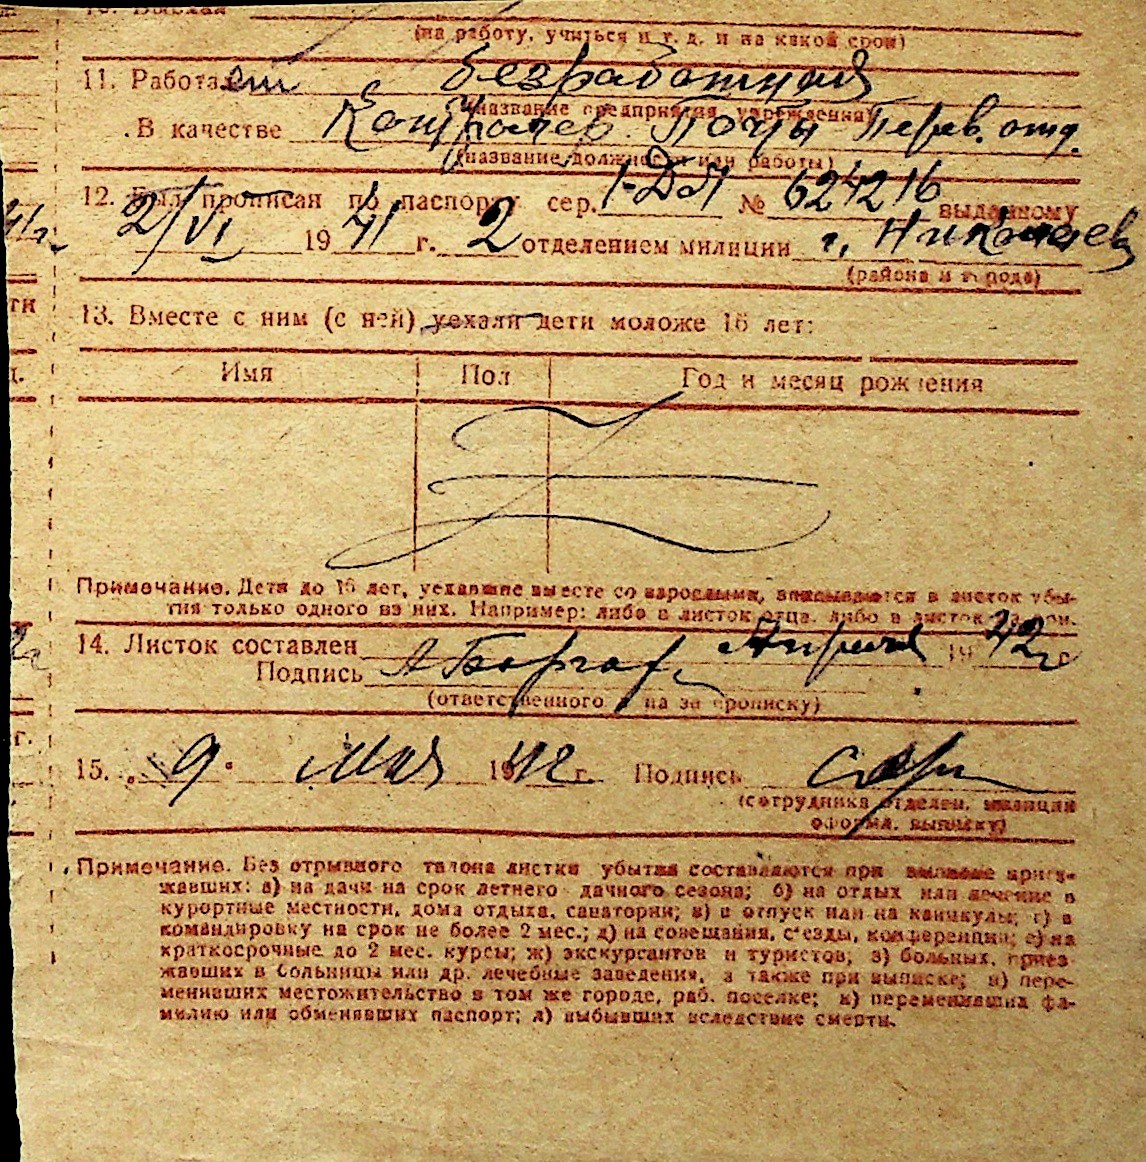 (на работу, учиться и т. д. и на какой срок)
11. Работает безработная
(название предприятия, учреждения)
В качестве Контролер Почты Перв. отд.
(название должности или работы)
12. Был прописан по паспорту сер. № 624216 выданному
2/VI 1941 г. 2 отделением милиции г. Николаев
(района и города)
13. Вместе с ним (с ней) уехали дети моложе 16 лет:
Имя Пол Год и месяц рождения
Примечание. Дети до 16 лет, уехавшие вместе со взрослыми, вписываются в листок убы-
тия только одного из них. Например: либо в листок отца, либо в листок матери.
14. Листок составлен Апреля 1942 г.
Подпись
(ответственного лица за прописку)
15. „9" мая 1942 г. Подпись
(сотрудника отделен. милиции
оформл. выписку)
Примечание. Без отрывного талона листки убытия составляются при выписке приез-
жавших: а) на дачи на срок летнего дачного сезона; б) на отдых или лечение в
курортные местности, дома отдыха, санатории; в) в отпуск или на каникулы; г) в
командировку на срок не более 2 мес.; д) на совещания, с'езды, конференции; е) на
краткосрочные до 2 мес. курсы; ж) экскурсантов и туристов; з) больных, приез-
жавших в больницы или др. лечебные заведения, а также при выписке; и) пере-
менивших местожительство в том же городе, раб. поселке; к) переменивших фа-
милию или обменявших паспорт; л) выбывших вследствие смерти.